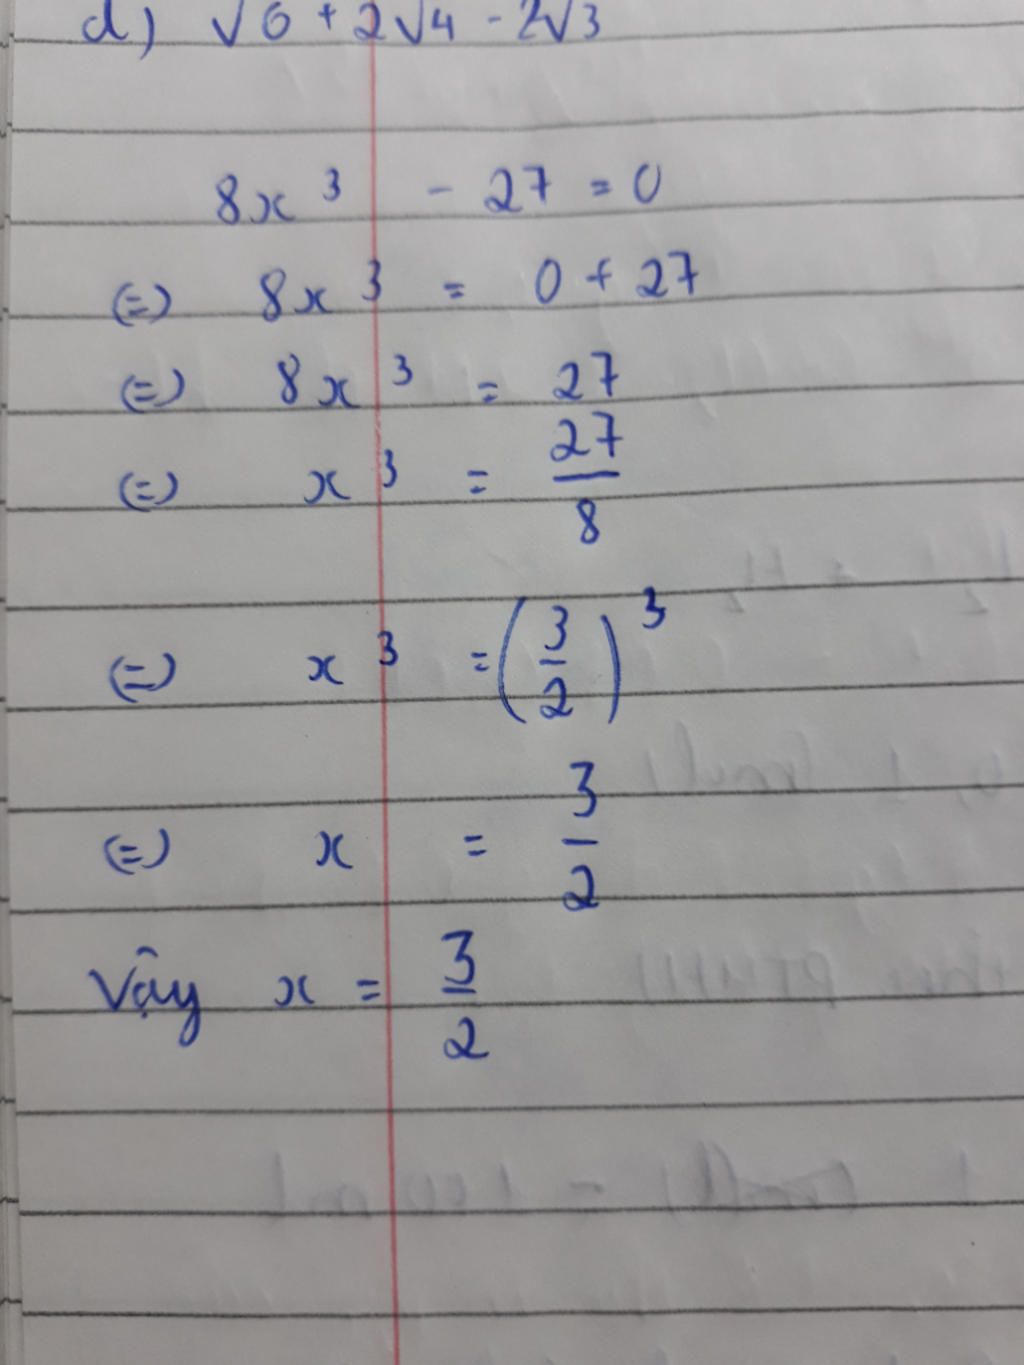 d) √6 + 2√4 - 2√3
8x³ - 27 = 0
(=) 8x³ = 0 + 27
(=) 8x³ = 27
(=) x³ = 27/8
(=) x³ = (3/2)³
(=) x = 3/2
Vậy x = 3/2